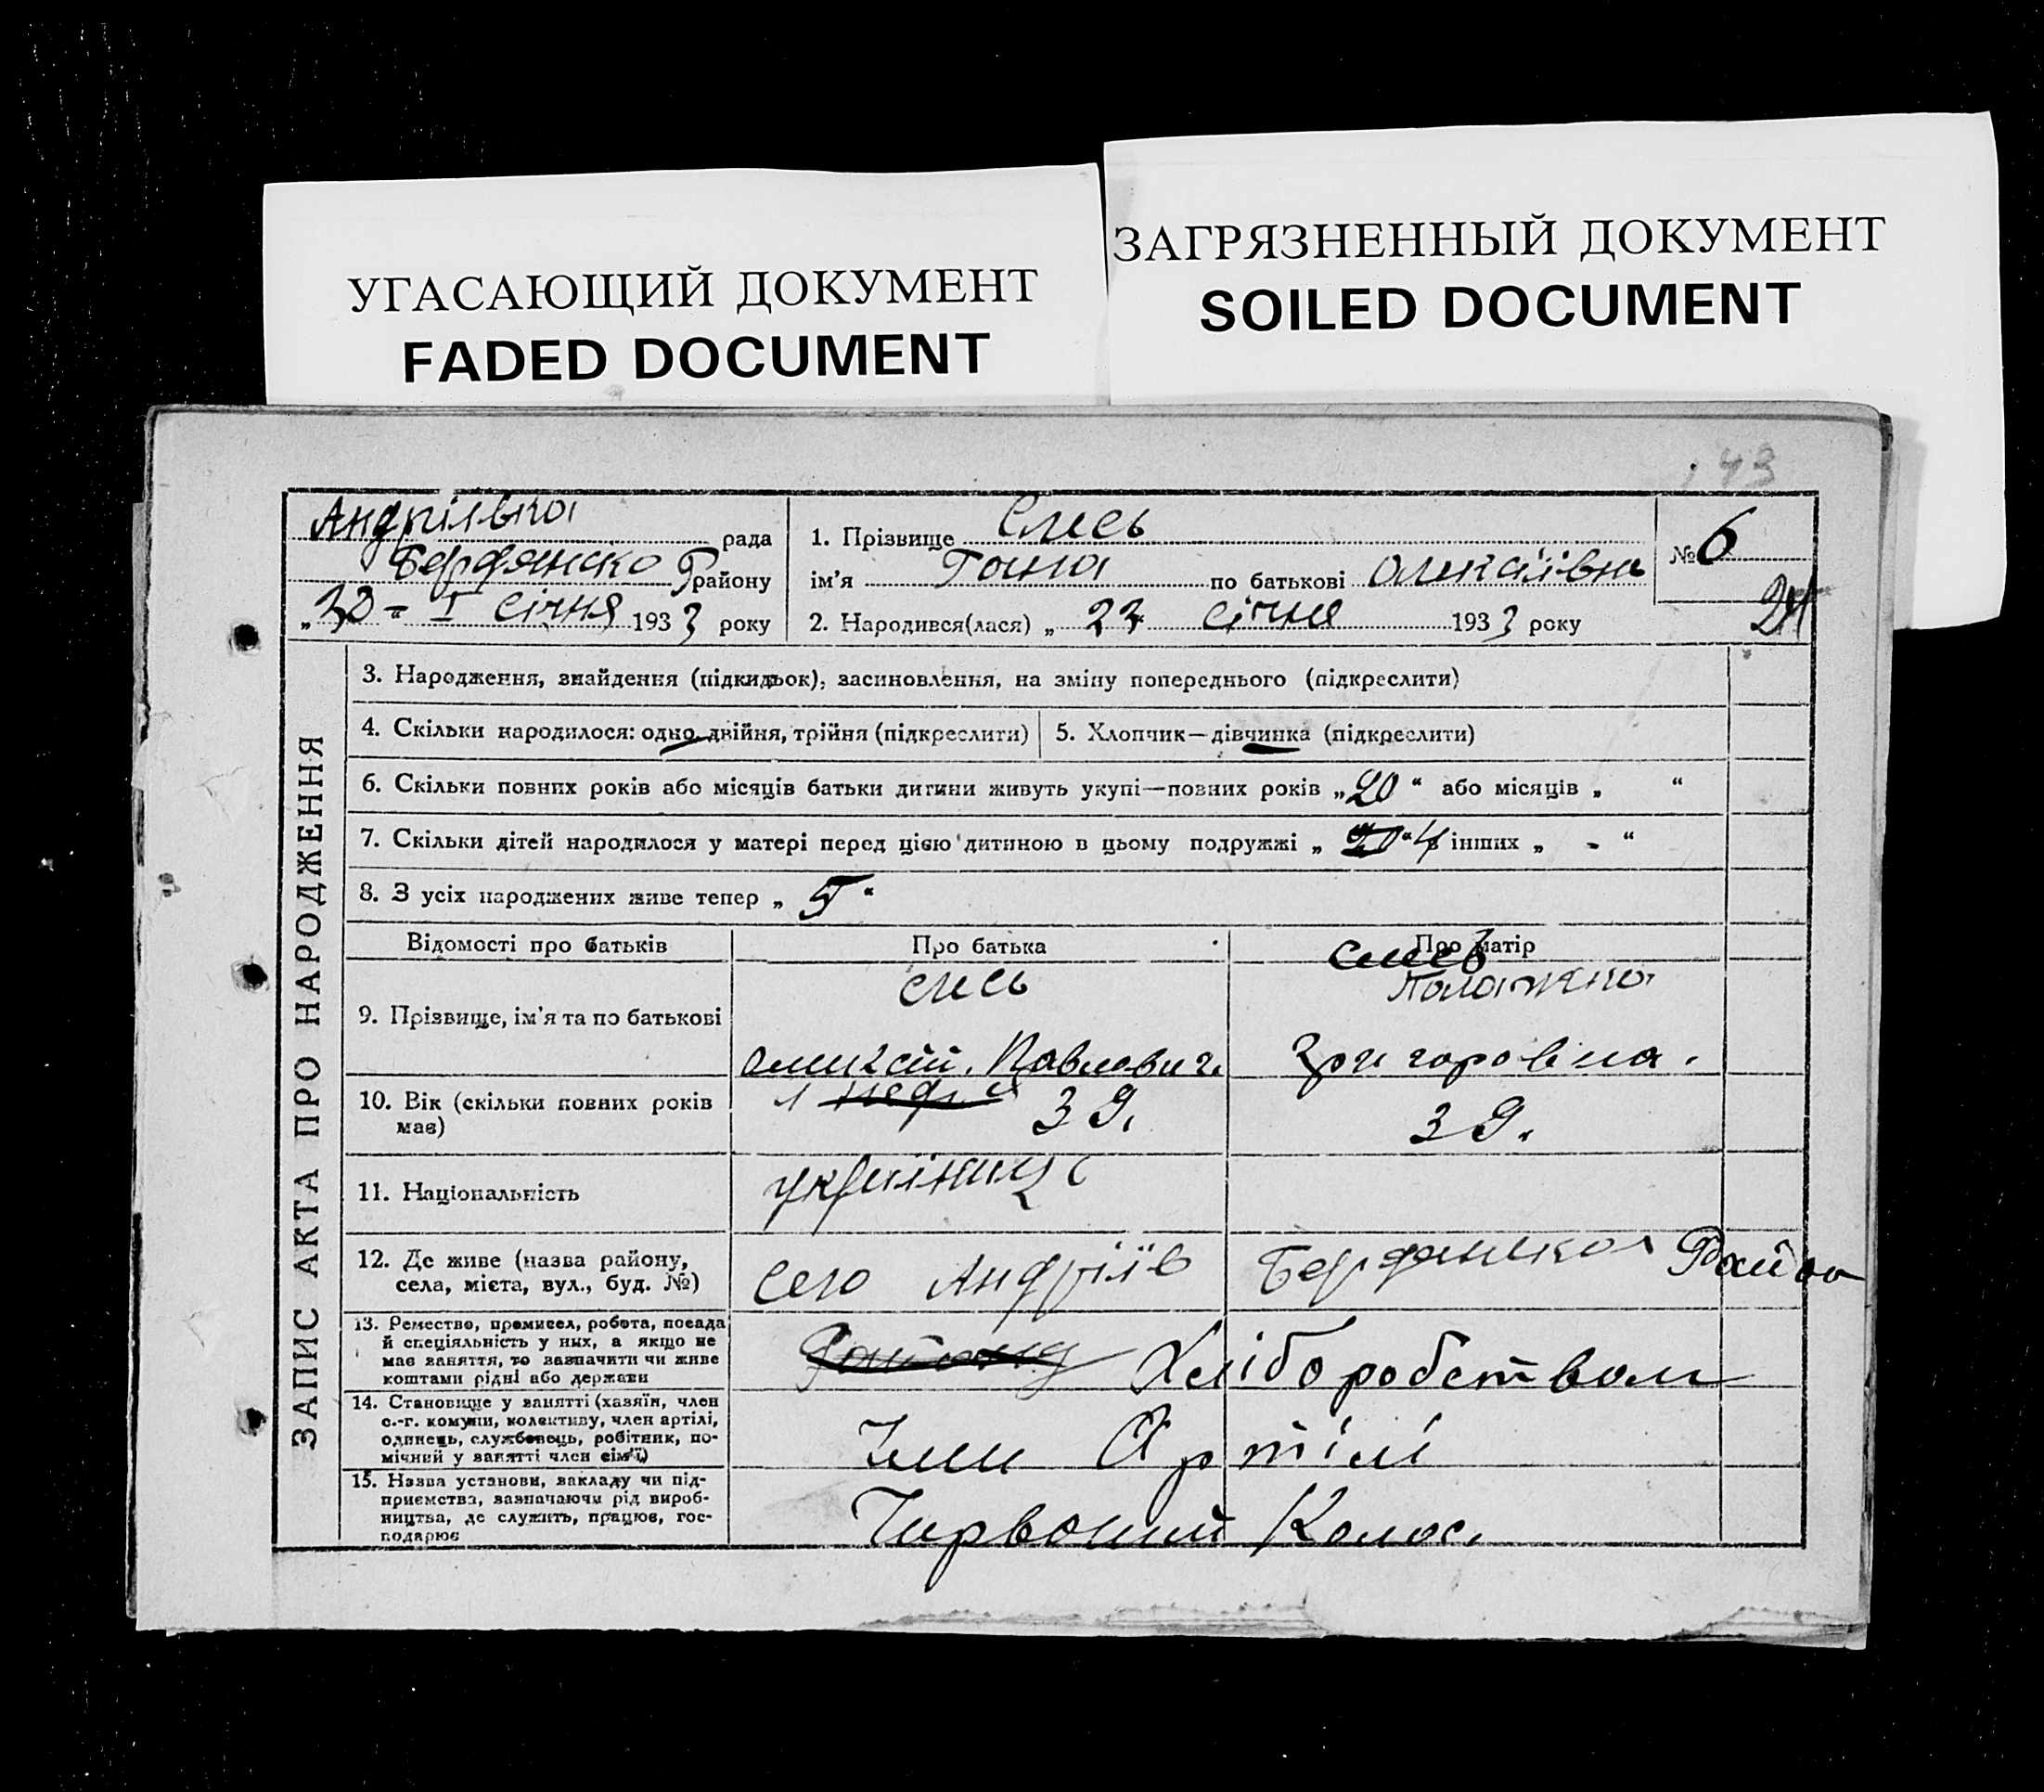 УГАСАЮЩИЙ ДОКУМЕНТ
FADED DOCUMENT
ЗАГРЯЗНЕННЫЙ ДОКУМЕНТ
SOILED DOCUMENT
43
Андріївка рада
Бердянско Району
„30" I січня 1933 року
1. Прізвище Слесь
ім'я Ганна по батькові Олексіівна
2. Народився(лася) „ 23 січня 1933 року
№ 6
24
ЗАПИС АКТА ПРО НАРОДЖЕННЯ
3. Народження, знайдення (підкидьок), засиновлення, на зміну попереднього (підкреслити)
4. Скільки народилося: одно, двійня, трійня (підкреслити)
5. Хлопчик—дівчинка (підкреслити)
6. Скільки повних років або місяців батьки дитини живуть укупі—повних років „20" або місяців „ "
7. Скільки дітей народилося у матері перед цією дитиною в цьому подружжі „ 4 інших „ - "
8. З усіх народжених живе тепер „ 5 "
Відомості про батьків Про батька Про матір
9. Прізвище, ім'я та по батькові
Слесь
Оликсій. Павлович.
Слесь
Палажка
Григоровна.
10. Вік (скільки повних років має)
39.
39.
11. Національність
українці
12. Де живе (назва району, села, міста, вул., буд. №)
Село Андріїв Бердянском Район
13. Ремество, промисел, робота, посада
й спеціяльність у них, а якщо не
має заняття, то зазначити чи живе
коштами рідні або держави
Хліборобством
14. Становище у занятті (хазяїн, член
с.-г. комуни, колективу, член артілі,
одинець, службовець, робітник, по-
мічний у занятті член сім'ї)
Член Артілі
15. Назва установи, закладу чи під-
приємства, зазначаючи рід вироб-
ництва, де служить, працює, гос-
подарює
Чирвоний Колос.